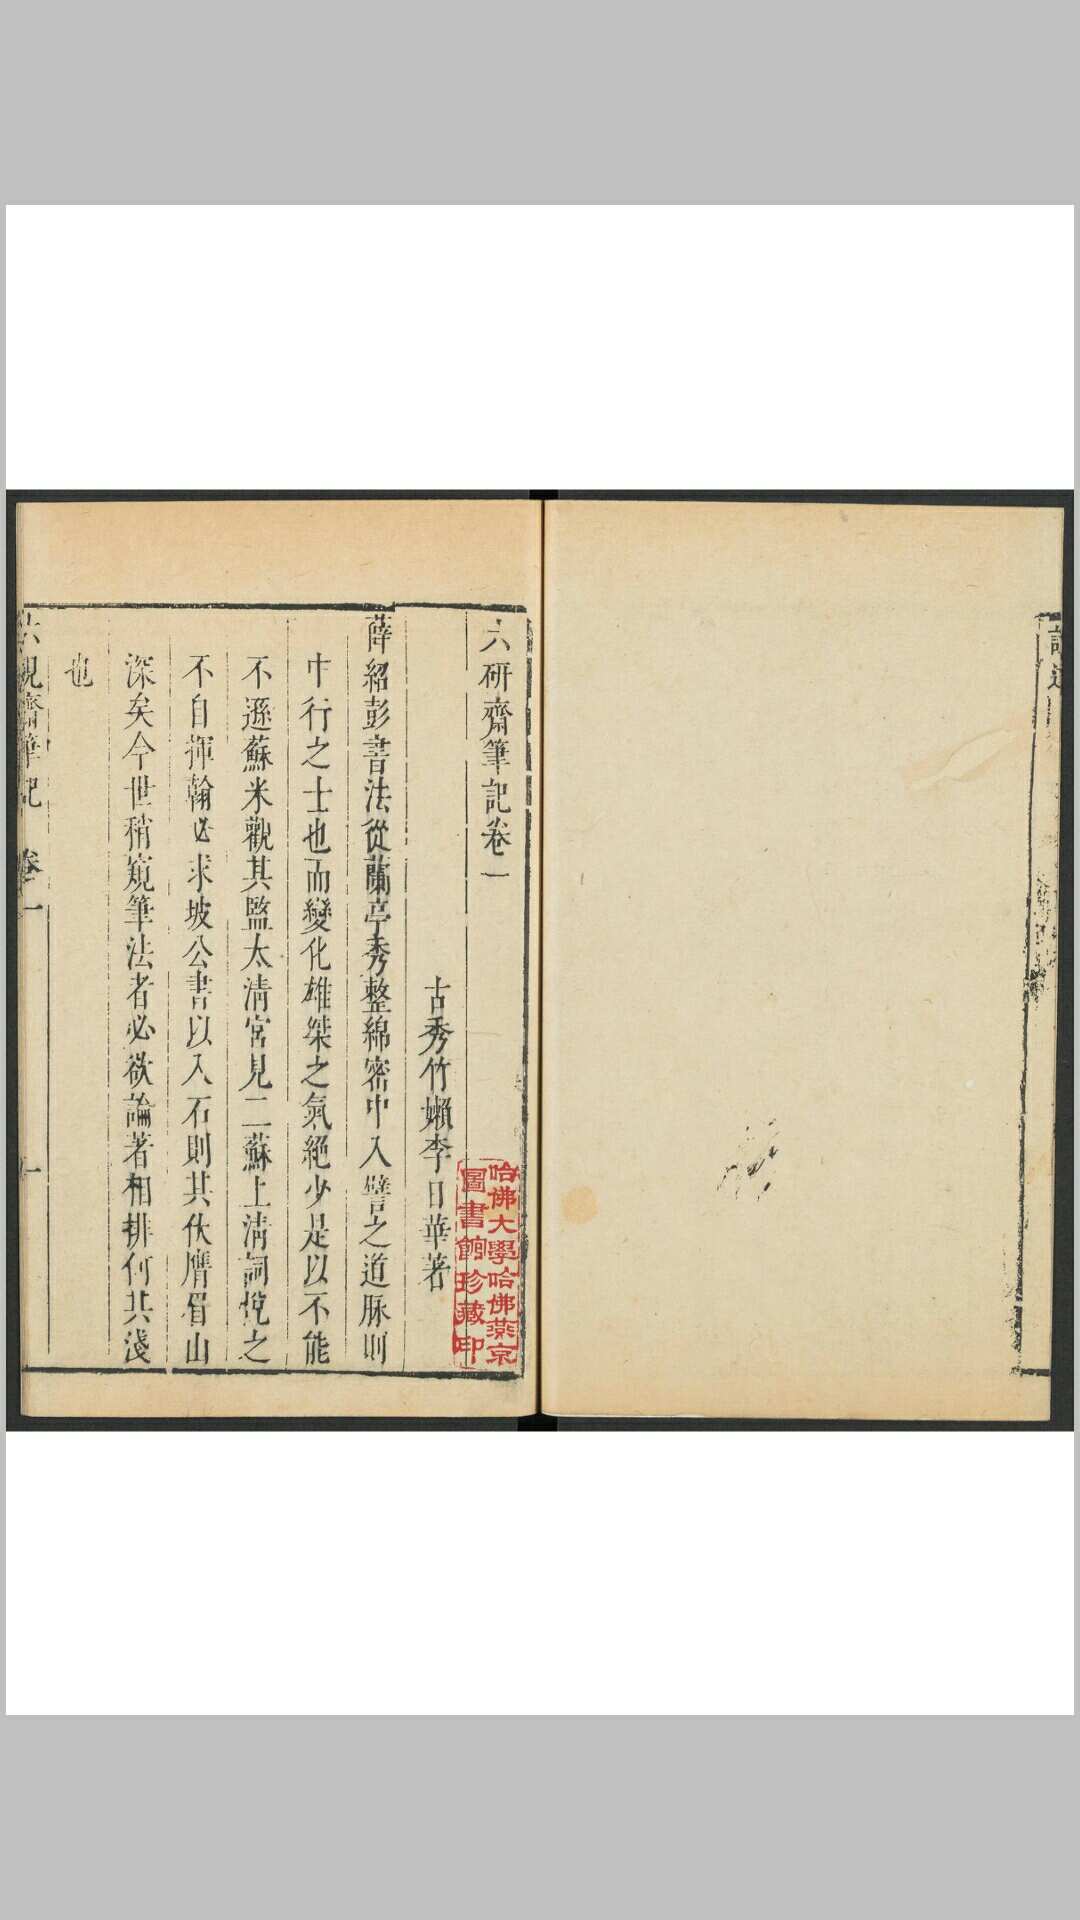 六研齋筆記卷一
古秀竹嬾李日華著
薛紹彭書法從蘭亭秀整綿密中入譬之道脉則
中行之士也而變化雄桀之氣絶少是以不能
不遜蘇米觀其監太清宮見二蘇上清詞悅之
不自揮翰必求坡公書以入石則其伏膺眉山
深矣今世稍窺筆法者必欲論著相排何其淺
也
六硯齋筆記 卷一 一
哈佛大學哈佛燕京
圖書館珍藏印